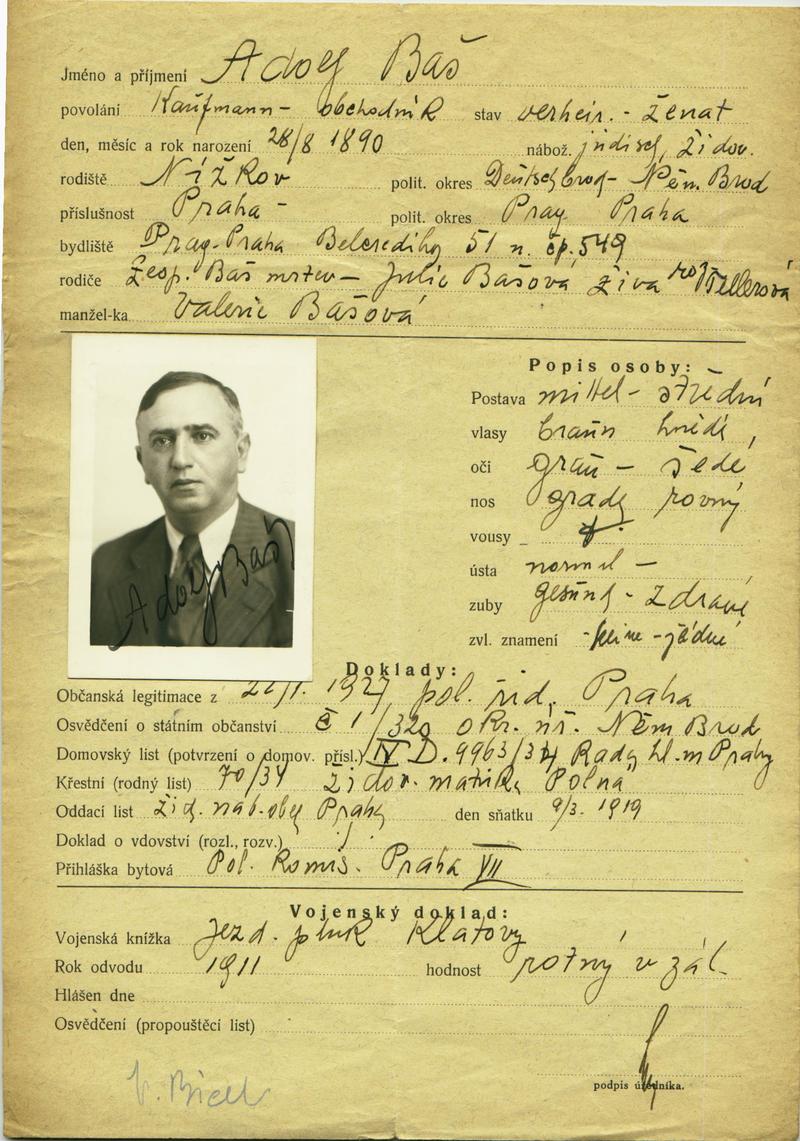 Jméno a příjmení Adolf Baš
povolání Kaufmann - obchodník stav verheir. - ženat
den, měsíc a rok narození 28/8 1890 nábož. jüdisch, židov.
rodiště Nížkov polit. okres Deutschbrod - Něm. Brod
příslušnost Praha - polit. okres Prag Praha
bydliště Prag-Praha Belcrediho 51 n. čp. 549
rodiče Baš mrtev - Julie Bašová živa roz. Fellerová
manžel-ka Valerie Bašová
Popis osoby:
Postava mittel - střední
vlasy braun hnědé
oči grau - šedé
nos grade rovný
vousy
ústa normal -
zuby gesund - zdravé
zvl. znamení - keine - jádné
Adolf Baš
Doklady:
Občanská legitimace z 1927 pol. řid. Praha
Osvědčení o státním občanství č 1/320 okr. úř. Něm Brod
Domovský list (potvrzení o domov. přísl.) IV D. 9963/34 Rady hl. m Prahy
Křestní (rodný list) 70/34 židov. matrika Polná
Oddací list žid. náb. obce Prahy den sňatku 9/3. 1919
Doklad o vdovství (rozl., rozv.)
Přihláška bytová Pol. komis. Praha VII
Vojenský doklad:
Vojenská knížka Jezd. pluk Klatovy
Rok odvodu 1911 hodnost rotný v zál.
Hlášen dne
Osvědčení (propouštěcí list)
podpis úředníka.